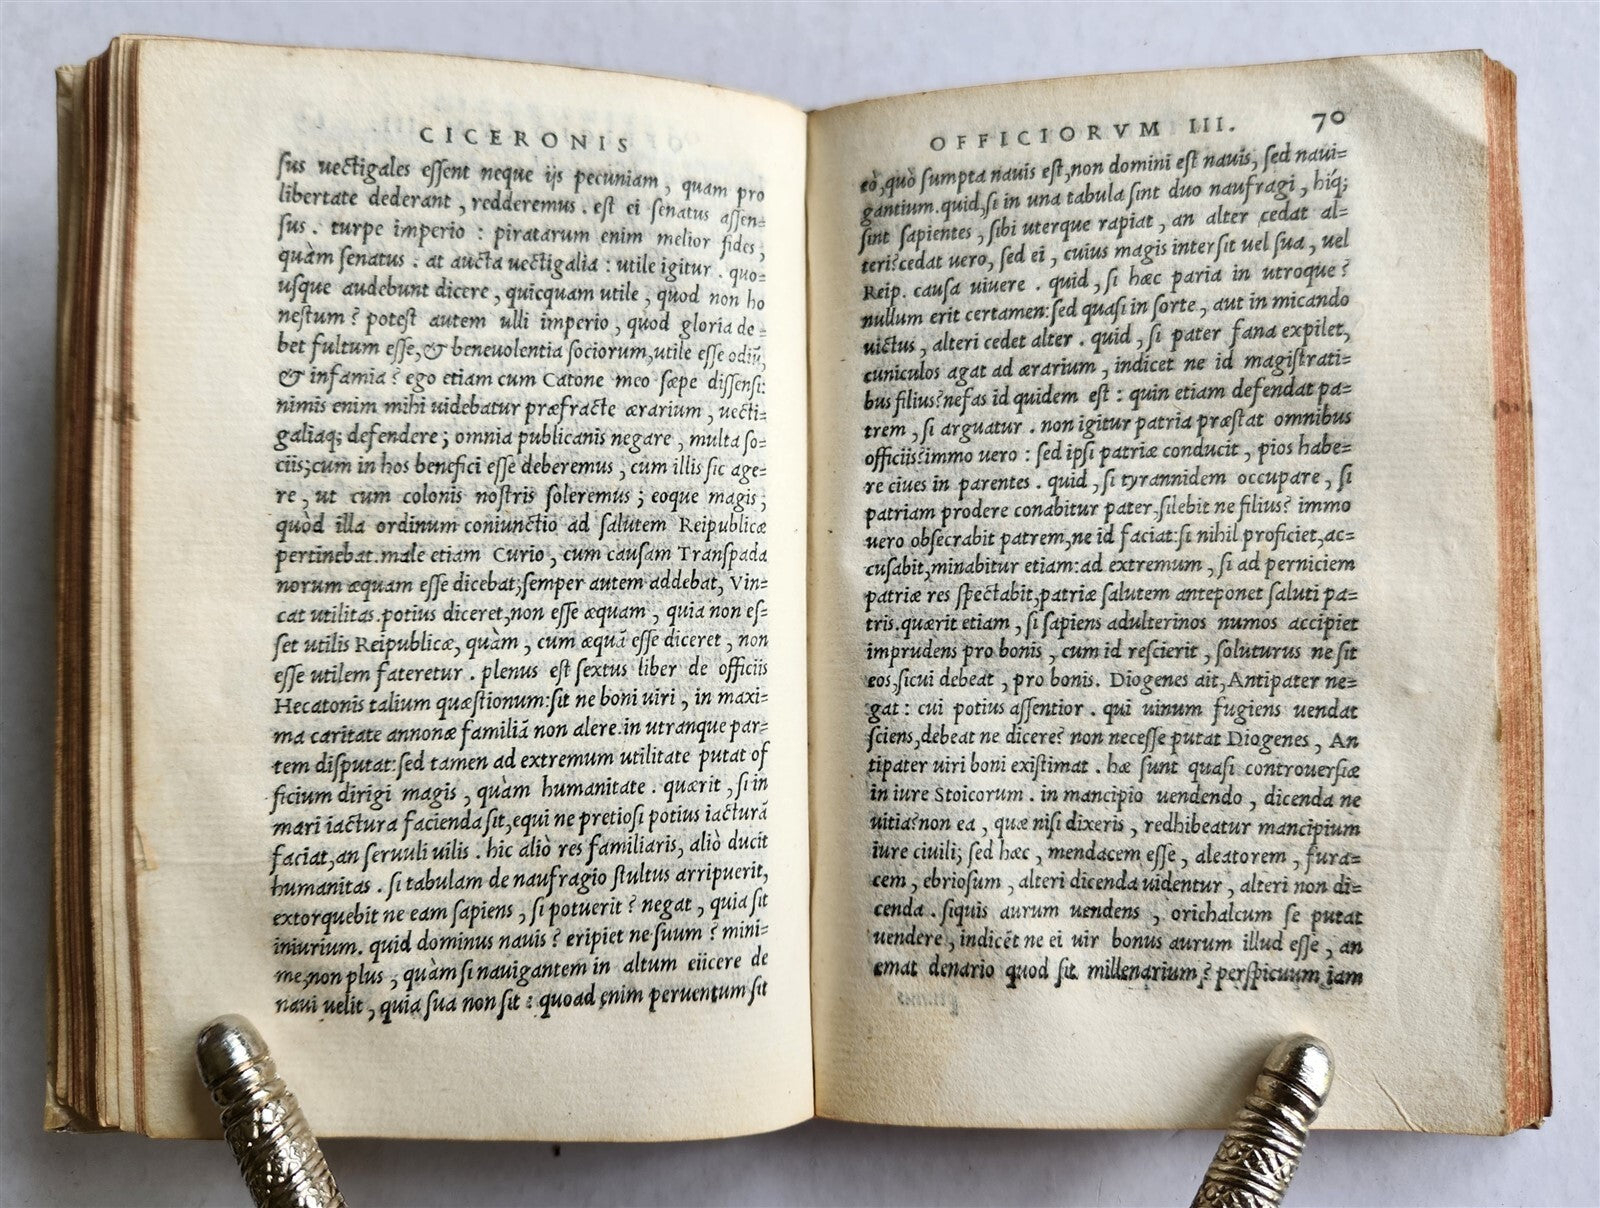 CICERONIS
sus uectigales essent neque ijs pecuniam, quam pro
libertate dederant, redderemus. est ei senatus assen=
sus. turpe imperio: piratarum enim melior fides,
quàm senatus. at aucta uectigalia: utile igitur. quo=
usque audebunt dicere, quicquam utile, quod non ho
nestum? potest autem ulli imperio, quod gloria de=
bet fultum esse, & beneuolentia sociorum, utile esse odiũ,
& infamia? ego etiam cum Catone meo sæpe dissensi:
nimis enim mihi uidebatur præfracte ærarium, uecti=
galiaq; defendere; omnia publicanis negare, multa so=
ciis; cum in hos benefici esse deberemus, cum illis sic age=
re, ut cum colonis nostris soleremus; eoque magis,
quòd illa ordinum coniunctio ad salutem Reipublicæ
pertinebat. male etiam Curio, cum causam Transpada
norum æquam esse dicebat; semper autem addebat, Vin=
cat utilitas. potius diceret, non esse æquam, quia non es=
set utilis Reipublicæ, quàm, cum æquã esse diceret, non
esse utilem fateretur. plenus est sextus liber de officiis
Hecatonis talium quæstionum: sit ne boni uiri, in maxi=
ma caritate annonæ familiã non alere. in utranque par=
tem disputat: sed tamen ad extremum utilitate putat of
ficium dirigi magis, quàm humanitate. quærit, si in
mari iactura facienda sit, equi ne pretiosi potius iacturã
faciat, an seruuli uilis. hic aliò res familiaris, aliò ducit
humanitas. si tabulam de naufragio stultus arripuerit,
extorquebit ne eam sapiens, si potuerit? negat, quia sit
iniurium. quid dominus nauis? eripiet ne suum? mini=
me, non plus, quàm si nauigantem in altum eiicere de
naui uelit, quia sua non sit: quoad enim peruentum sit
OFFICIORVM III. 70
eò, quò sumpta nauis est, non domini est nauis, sed naui=
gantium. quid, si in una tabula sint duo naufragi, hiq;
sint sapientes, sibi uterque rapiat, an alter cedat al=
teri? cedat uero, sed ei, cuius magis intersit uel sua, uel
Reip. causa uiuere. quid, si hæc paria in utroque?
nullum erit certamen: sed quasi in sorte, aut in micando
uictus, alteri cedet alter. quid, si pater fana expilet,
cuniculos agat ad ærarium, indicet ne id magistrati=
bus filius? nefas id quidem est: quin etiam defendat pa=
trem, si arguatur. non igitur patria præstat omnibus
officiis? immo uero: sed ipsi patriæ conducit, pios habe=
re ciues in parentes. quid, si tyrannidem occupare, si
patriam prodere conabitur pater, silebit ne filius? immo
uero obsecrabit patrem, ne id faciat: si nihil proficiet, ac=
cusabit, minabitur etiam: ad extremum, si ad perniciem
patriæ res spectabit, patriæ salutem anteponet saluti pa=
tris. quærit etiam, si sapiens adulterinos numos accipiet
imprudens pro bonis, cum id rescierit, soluturus ne sit
eos, sicui debeat, pro bonis. Diogenes ait, Antipater ne=
gat: cui potius assentior. qui uinum fugiens uendat
sciens, debeat ne dicere? non necesse putat Diogenes, An
tipater uiri boni existimat. hæ sunt quasi controuersiæ
in iure Stoicorum. in mancipio uendendo, dicenda ne
uitia? non ea, quæ nisi dixeris, redhibeatur mancipium
iure ciuili; sed hæc, mendacem esse, aleatorem, fura=
cem, ebriosum, alteri dicenda uidentur, alteri non di=
cenda. siquis aurum uendens, orichalcum se putat
uendere, indicet ne ei uir bonus aurum illud esse, an
emat denario quod sit millenarium? perspicuum iam